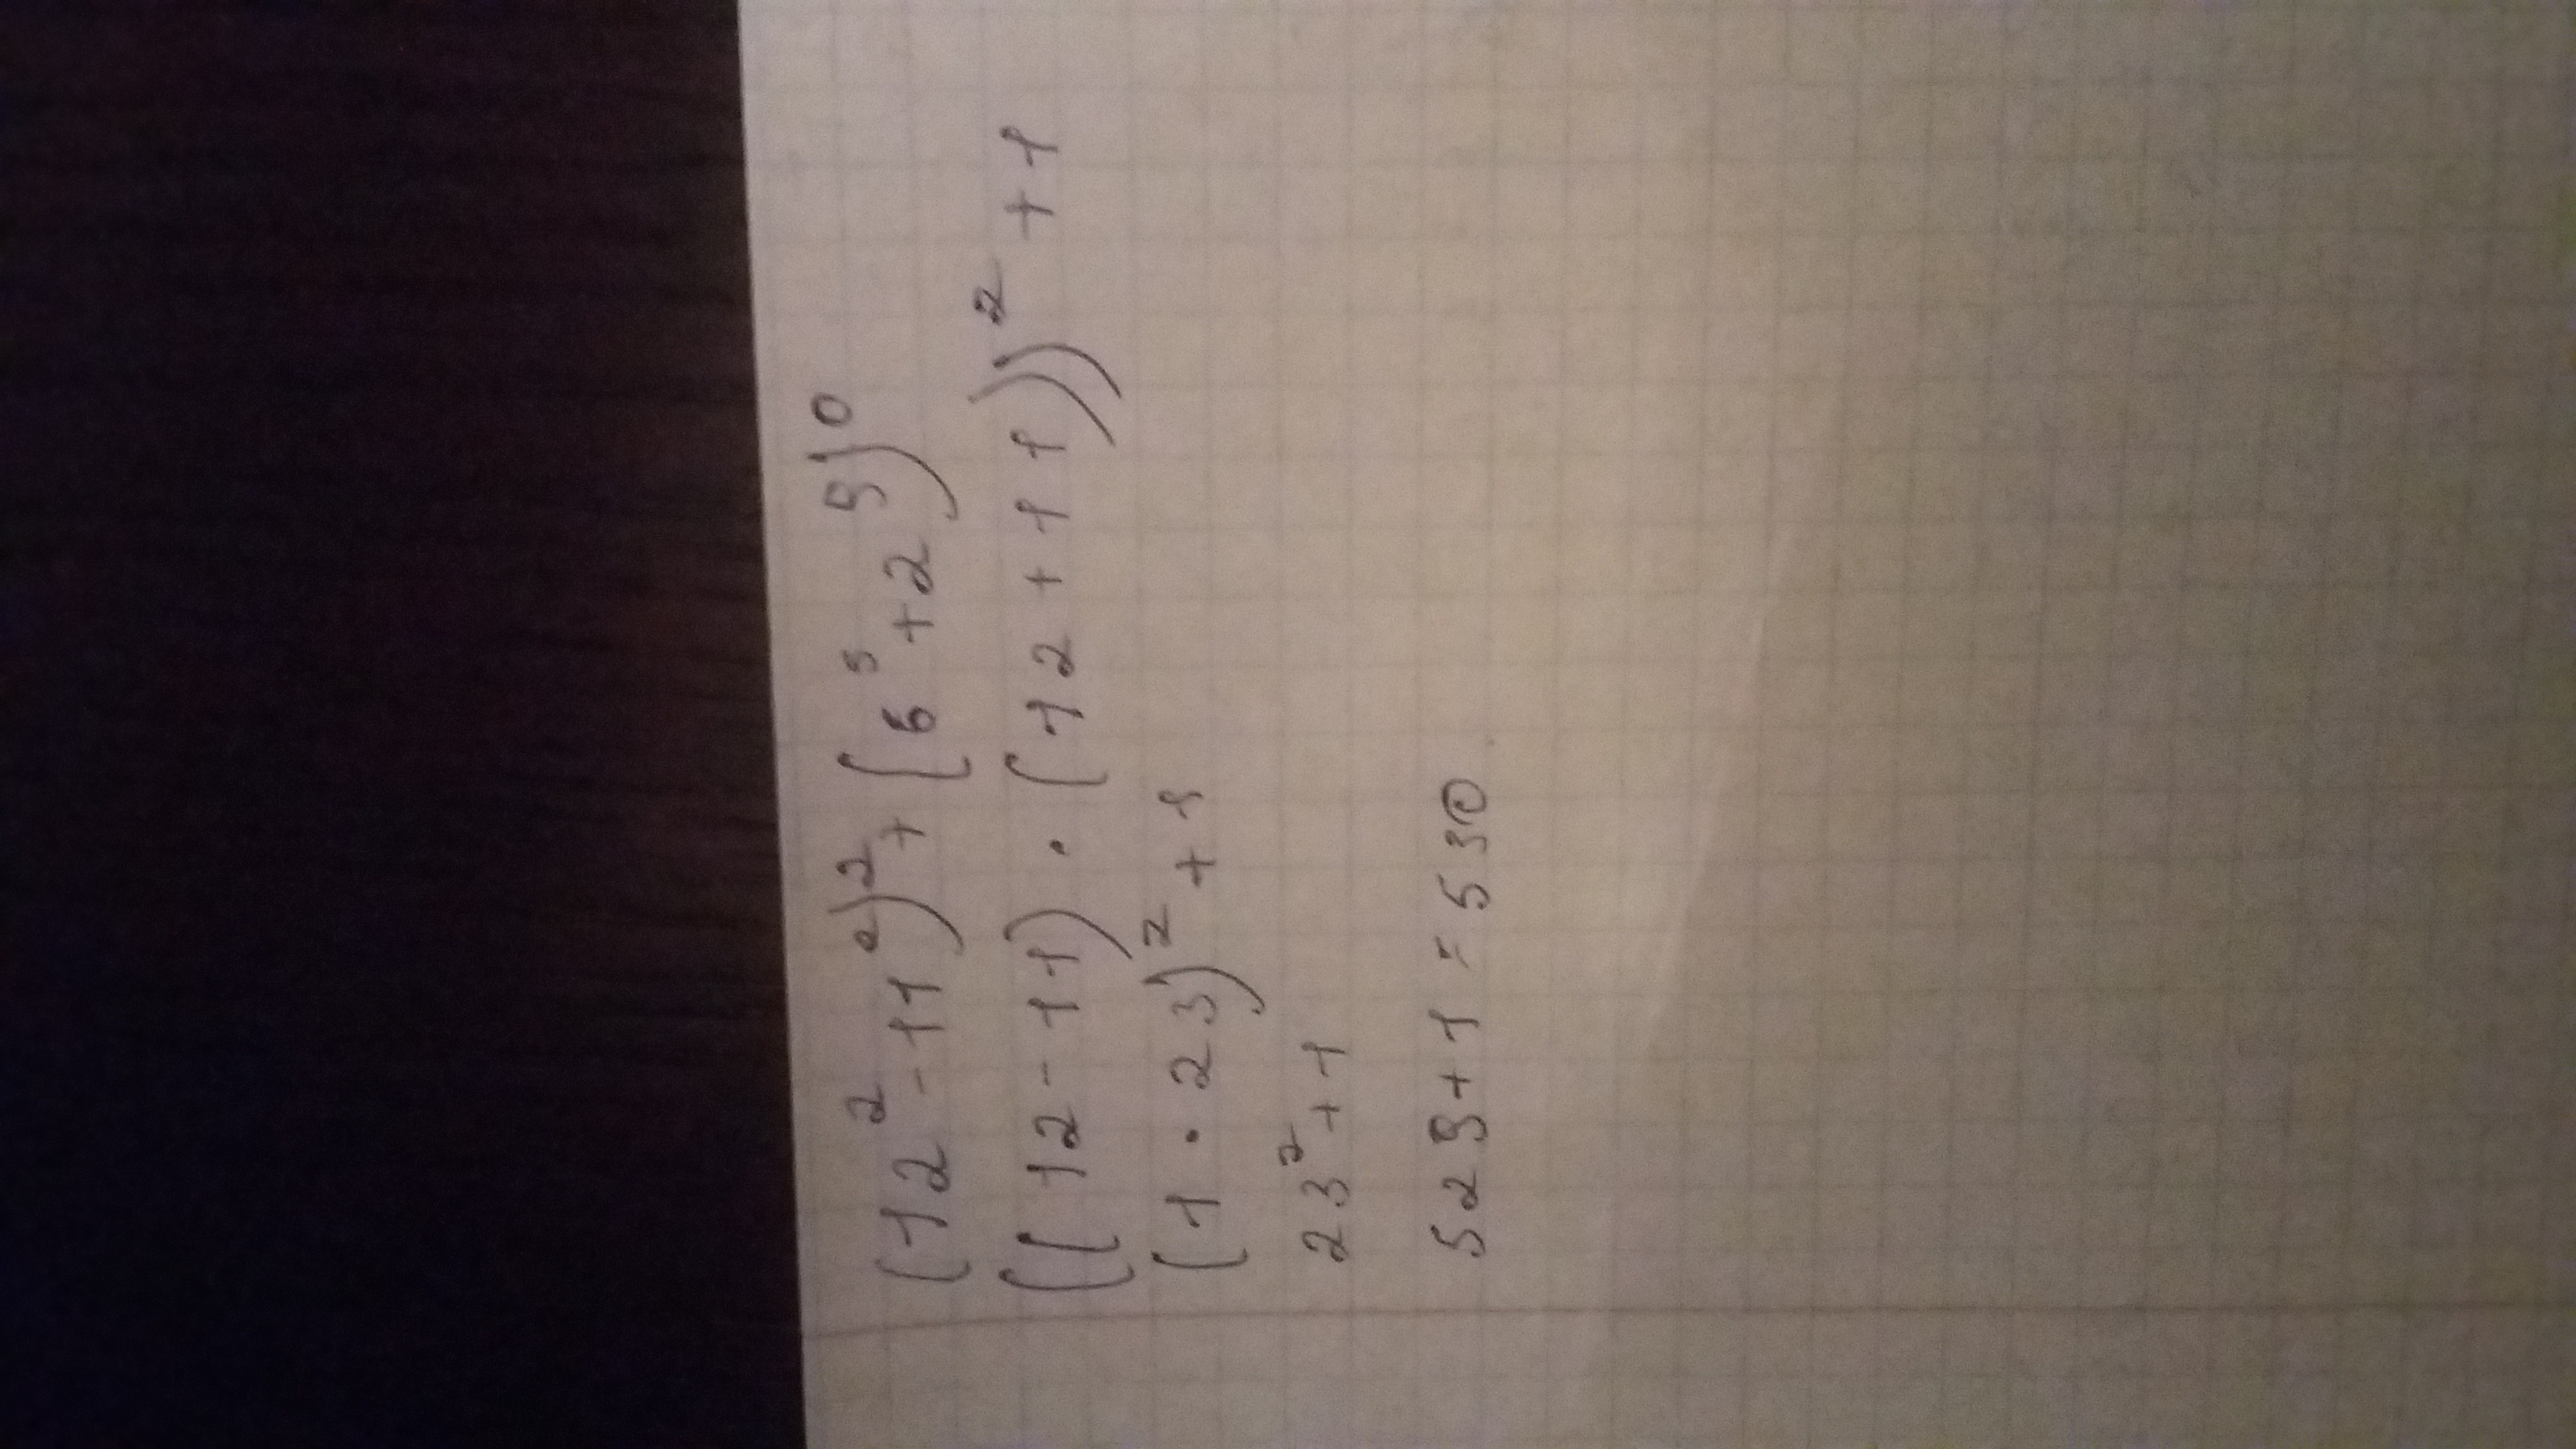 (12² - 11²)² + (6⁵ + 2⁹)⁰
((12 - 11) · (12 + 11))² + 1
(1 · 23)² + 1
23² + 1
529 + 1 = 530